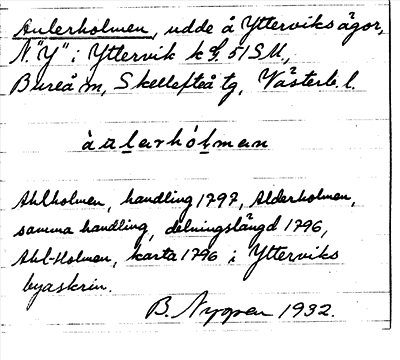 Aulerholmen, udde å Ytterviks ägor,
N. "Y" i Yttervik k L. 51 SM,
Bureå m, Skellefteå tg, Västerb. l.
àalarhólman
Ahlholmen, handling 1797, Alderholmen,
samma handling, delningslängd 1796,
Ahl-Holmen, karta 1796 i Ytterviks
byaskrin.
B. Nygren 1932.